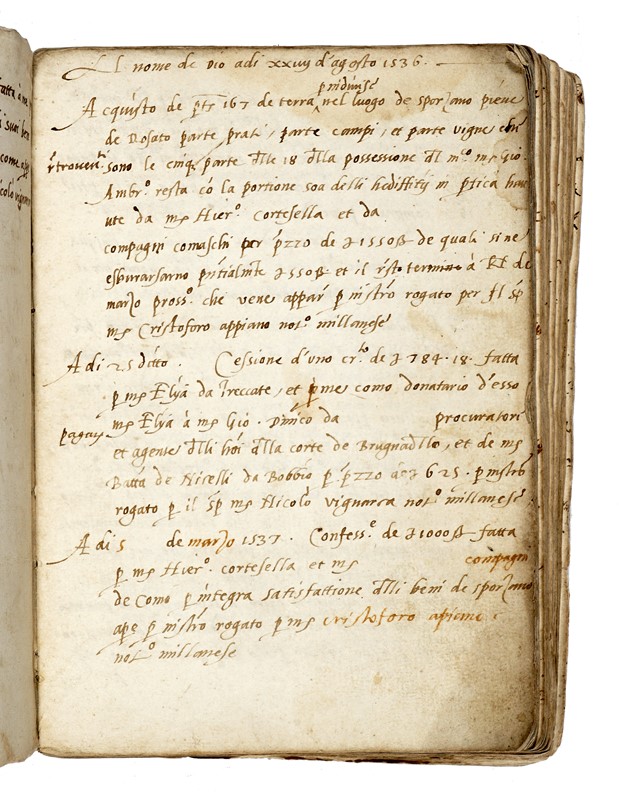 Al nome de Dio adi xxvij d'agosto 1536.
p indivise
Acquisto de ptº 167 de terra nel luogo de sporzano pieve
de Rosato parte prati, parte campi, et parte vigne
sono le cinq parte dlle 18 dlla possessione dl mº ms Gio.
Ambrº. resta cō la portione soa delli hediffitij in ptica hav
ute da ms Hierº. cortesella et da
compagni comaschi per pzzo de 1550 de quali si ne
550 et il rsto termine à
marzo prossº. che vene appar p instrō rogato per il sp
ms Cristoforo appiano notº millanese
Adi 25 ditto. Cessione d'uno crto de 784.18. fatta
p ms Elya da Treccate, et p me como donatario d'esso
ms Elya à ms Gio. Dmico da procuratori
pagany
et agente dlli hōi dlla corte de Brugnadllo, et de ms
Batta de Nicelli da Bobbio p pzzo de 625. p instrō
rogato p il sp ms Nicolo vignarca notº millanese
Adi 5 de marzo 1537. Confessº. de 1000 fatta
p ms Hierº. cortesella et ms compagni
de Como p integra satisfattione dlli beni de sporzano
ape p instrō rogato p ms cristoforo apiano
notº millanese